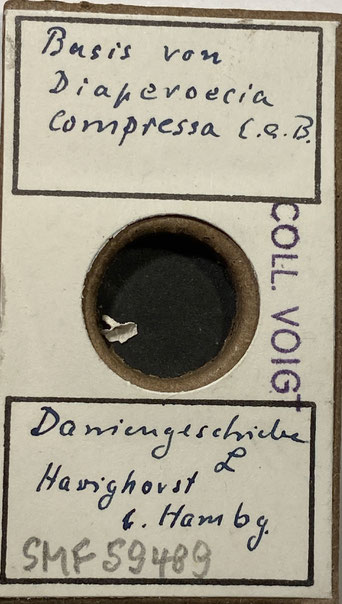 Basis von
Diaperoecia
compressa C.a.B.
COLL. VOIGT
Daniengeschiebe
L
Havighorst
b. Hambg.
SMF 59489